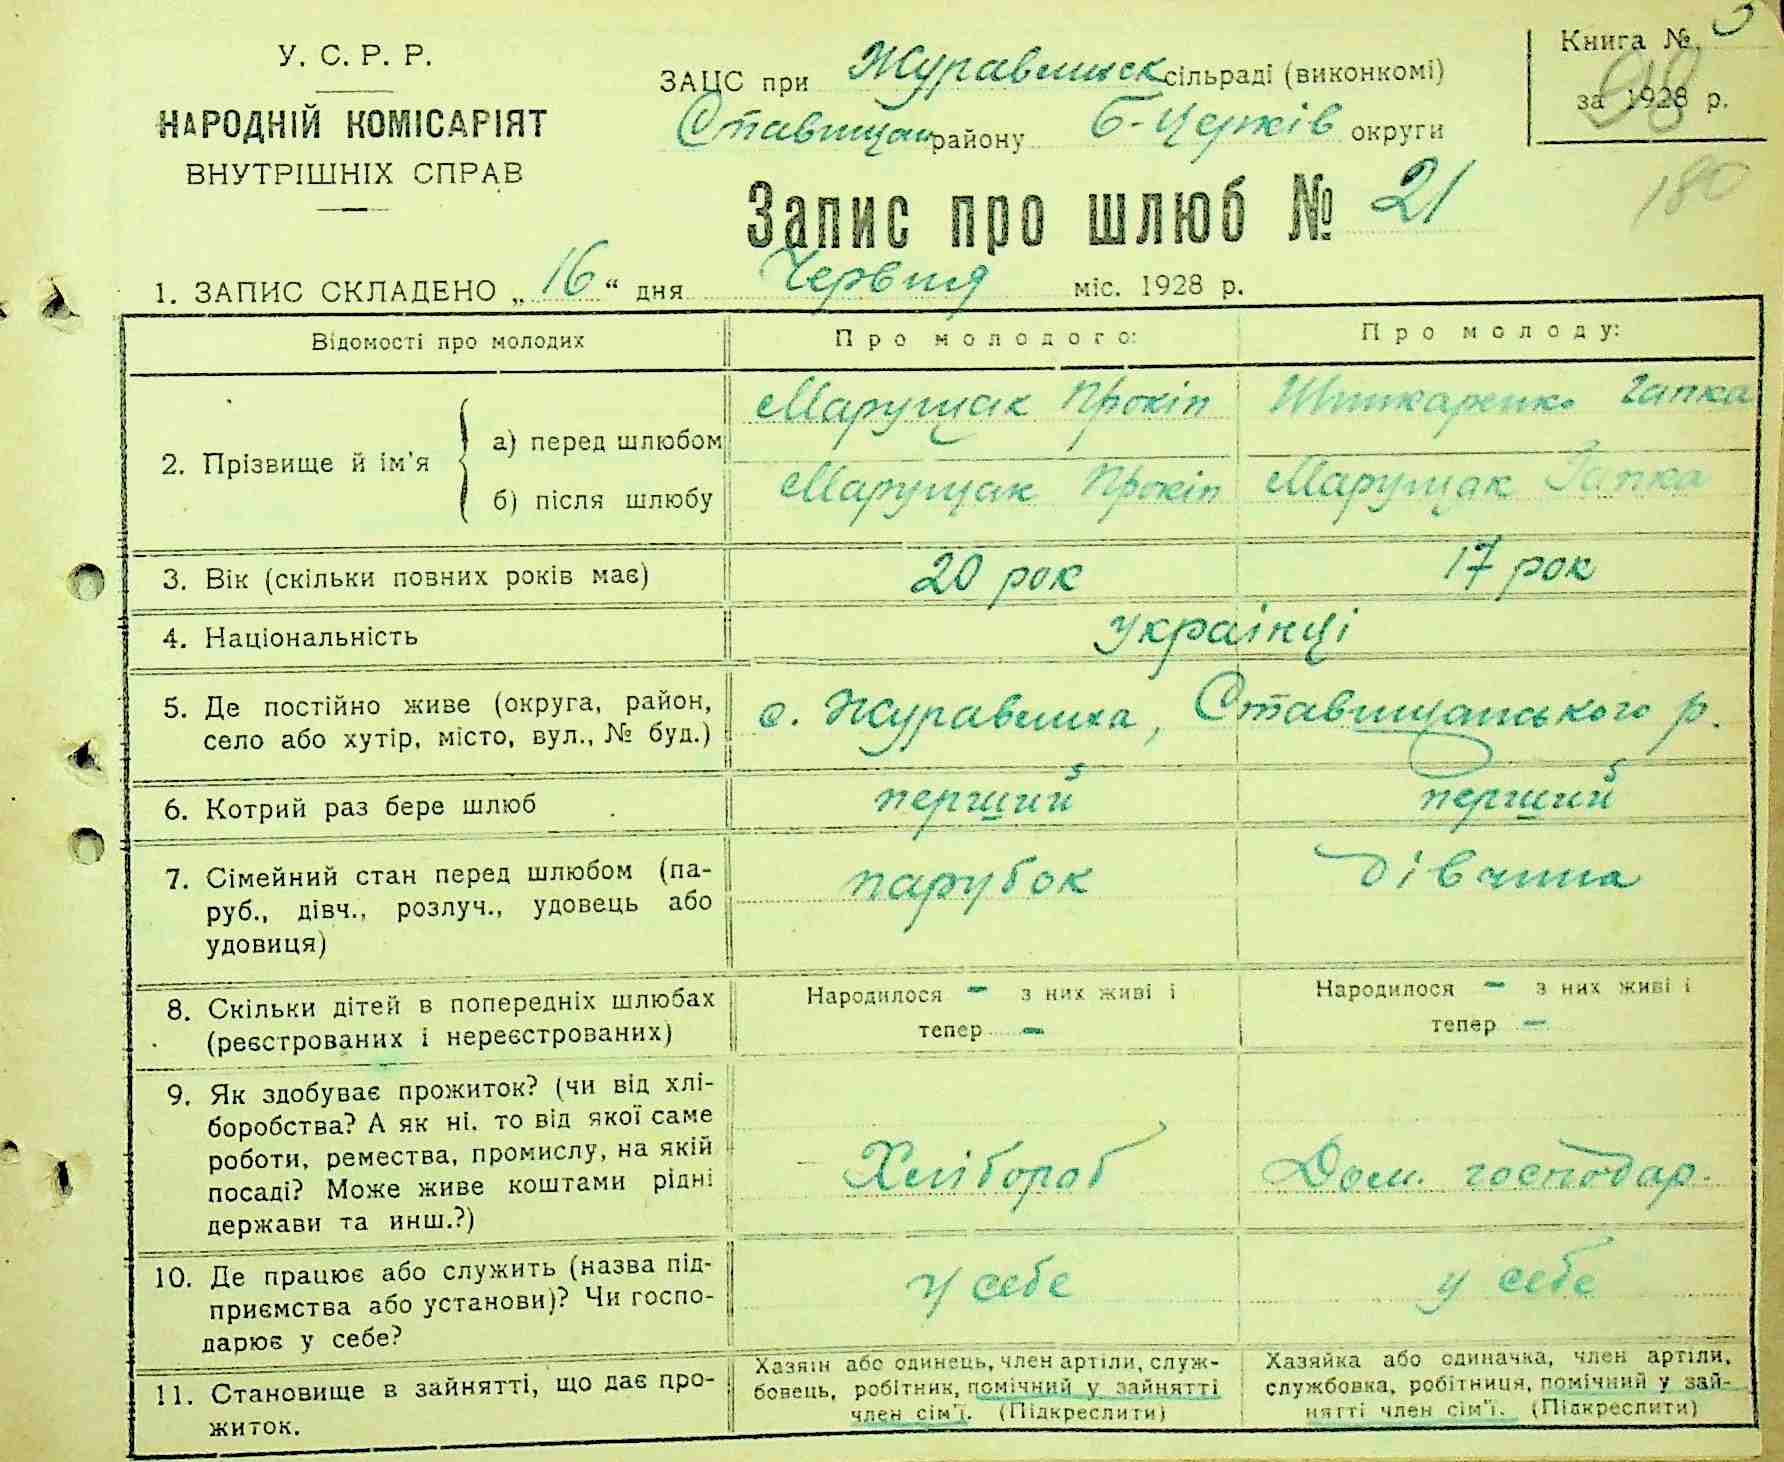 У. С. Р. Р.
НАРОДНІЙ КОМІСАРІЯТ
ВНУТРІШНІХ СПРАВ
ЗАЦС при Журавлиськ сільраді (виконкомі)
Ставищан району Б-Церків округи
Книга №
за 1928 р.
180
Запис про шлюб № 21
1. ЗАПИС СКЛАДЕНО „16“ дня Червня міс. 1928 р.
Відомості про молодих
Про молодого:
Про молоду:
2. Прізвище й ім'я
а) перед шлюбом
Марущак Прокіп
Шпикаренко Гапка
б) після шлюбу
Марущак Прокіп
Марущак Гапка
3. Вік (скільки повних років має)
20 рок
17 рок
4. Національність
українці
5. Де постійно живе (округа, район,
село або хутір, місто, вул., № буд.)
с. Журавлиха, Ставищанського р.
6. Котрий раз бере шлюб
перший
перший
7. Сімейний стан перед шлюбом (па-
руб., дівч., розлуч., удовець або
удовиця)
парубок
дівчина
8. Скільки дітей в попередніх шлюбах
(реєстрованих і нереєстрованих)
Народилося – з них живі і
тепер –
Народилося – з них живі і
тепер –
9. Як здобуває прожиток? (чи від хлі-
боробства? А як ні, то від якої саме
роботи, ремества, промислу, на якій
посаді? Може живе коштами рідні
держави та инш.?)
Хлібороб
Дом. господар.
10. Де працює або служить (назва під-
приємства або установи)? Чи госпо-
дарює у себе?
у себе
у себе
11. Становище в зайнятті, що дає про-
житок.
Хазяїн або одинець, член артіли, служ-
бовець, робітник, помічний у зайнятті
член сім'ї. (Підкреслити)
Хазяйка або одиначка, член артіли,
службовка, робітниця, помічний у зай-
нятті член сім'ї. (Підкреслити)